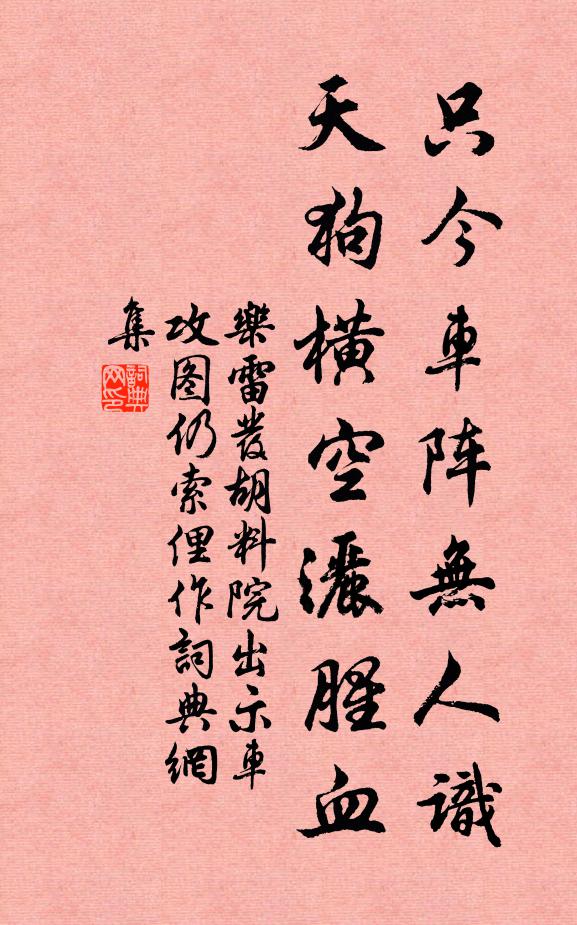 只今車阵無人識
天狗橫空灑腥血
樂雷發胡料院出示車
攻图仍索俚作詞典網
集
詞典網印